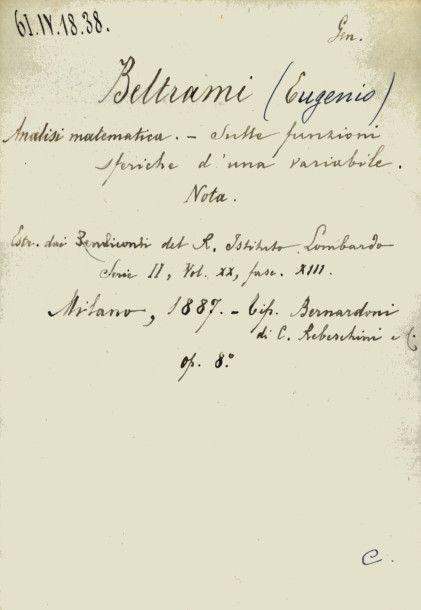 61.IV.18.38.
Gen.
Beltrami (Eugenio)
Analisi matematica. - Sulle funzioni
sferiche d'una variabile.
Nota.
Estr. dai Rendiconti del R. Istituto Lombardo
Serie II, Vol. XX, fasc. XIII.
Milano, 1887. - Tip. Bernardoni
di C. Rebeschini e C.
op. 8.°
C.